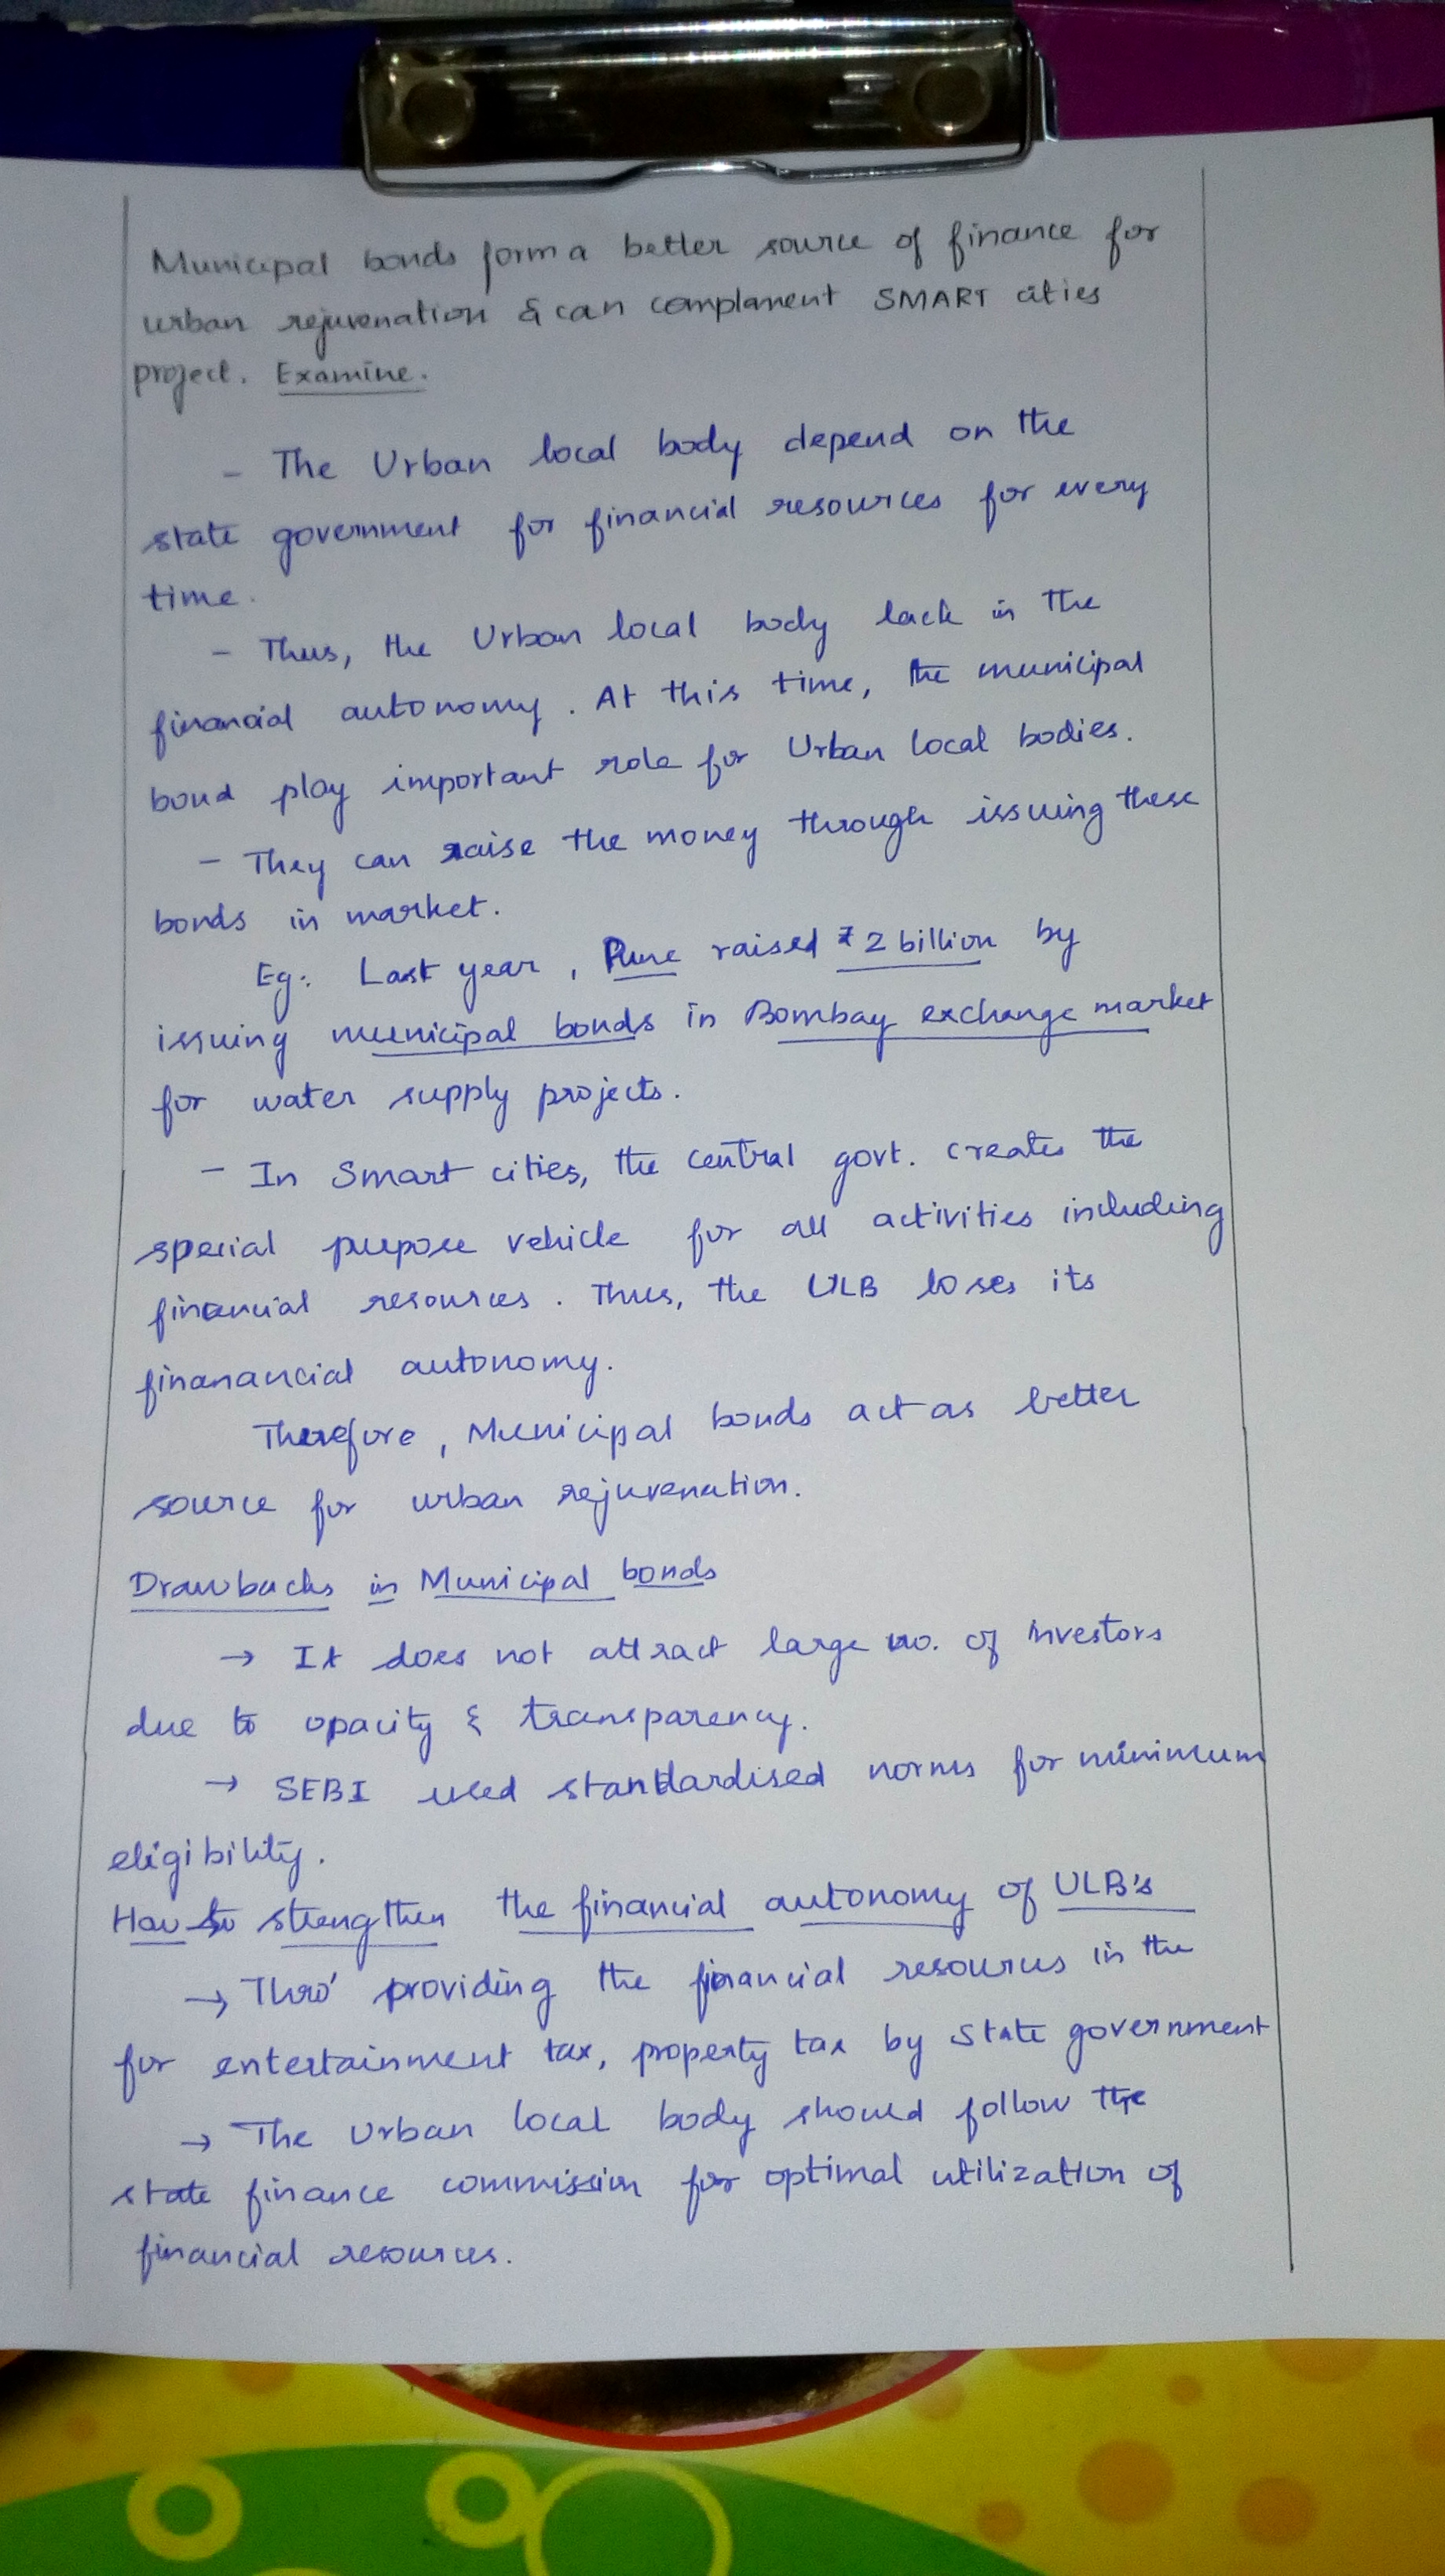 Municipal bonds form a better source of finance for
urban rejuvenation & can complament SMART cities
project. Examine.
- The Urban local body depend on the
state government for financial resources for every
time.
- Thus, the Urban local body lack in the
financial autonomy. At this time, the municipal
bond play important role for Urban local bodies.
- They can raise the money through issuing these
bonds in market.
Eg: Last year, Pune raised ₹ 2 billion by
issuing municipal bonds in Bombay exchange market
for water supply projects.
- In Smart cities, the central govt. creates the
special purpose vehicle for all activities including
financial resources. Thus, the ULB loses its
finanancial autonomy.
Therefore, Municipal bonds act as better
source for urban rejuvenation.
Drawbacks in Municipal bonds
→ It does not attract large no. of investors
due to opacity & transparency.
→ SEBI used standardised norms for minimum
eligibility.
How to strengthen the financial autonomy of ULB's
→ Thro' providing the financial resources in the
for entertainment tax, property tax by state government
→ The Urban local body should follow the
state finance commission for optimal utilization of
financial resources.